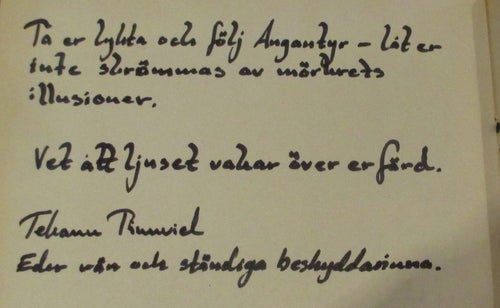 Ta er lykta och följ Angantyr – låt er
inte skrämmas av mörkrets
illusioner.
Vet att ljuset vakar över er färd.
Tehanu Tinuviel
Eder vän och ständiga beskyddarinna.